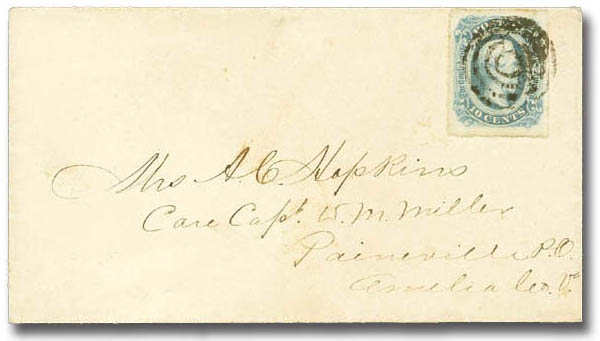 10 CENTS
Mrs A. C. Hopkins
Care Capt. W. M. Miller
Paineville P.O.
Amelia Co. Va